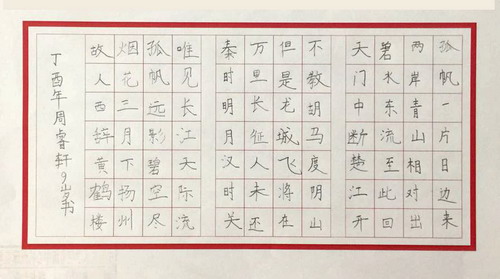 丁酉年周睿轩9岁书
故人西辞黄鹤楼
烟花三月下扬州
孤帆远影碧空尽
唯见长江天际流
秦时明月汉时关
万里长征人未还
但是龙城飞将在
不教胡马度阴山
天门中断楚江开
碧水东流至此回
两岸青山相对出
孤帆一片日边来